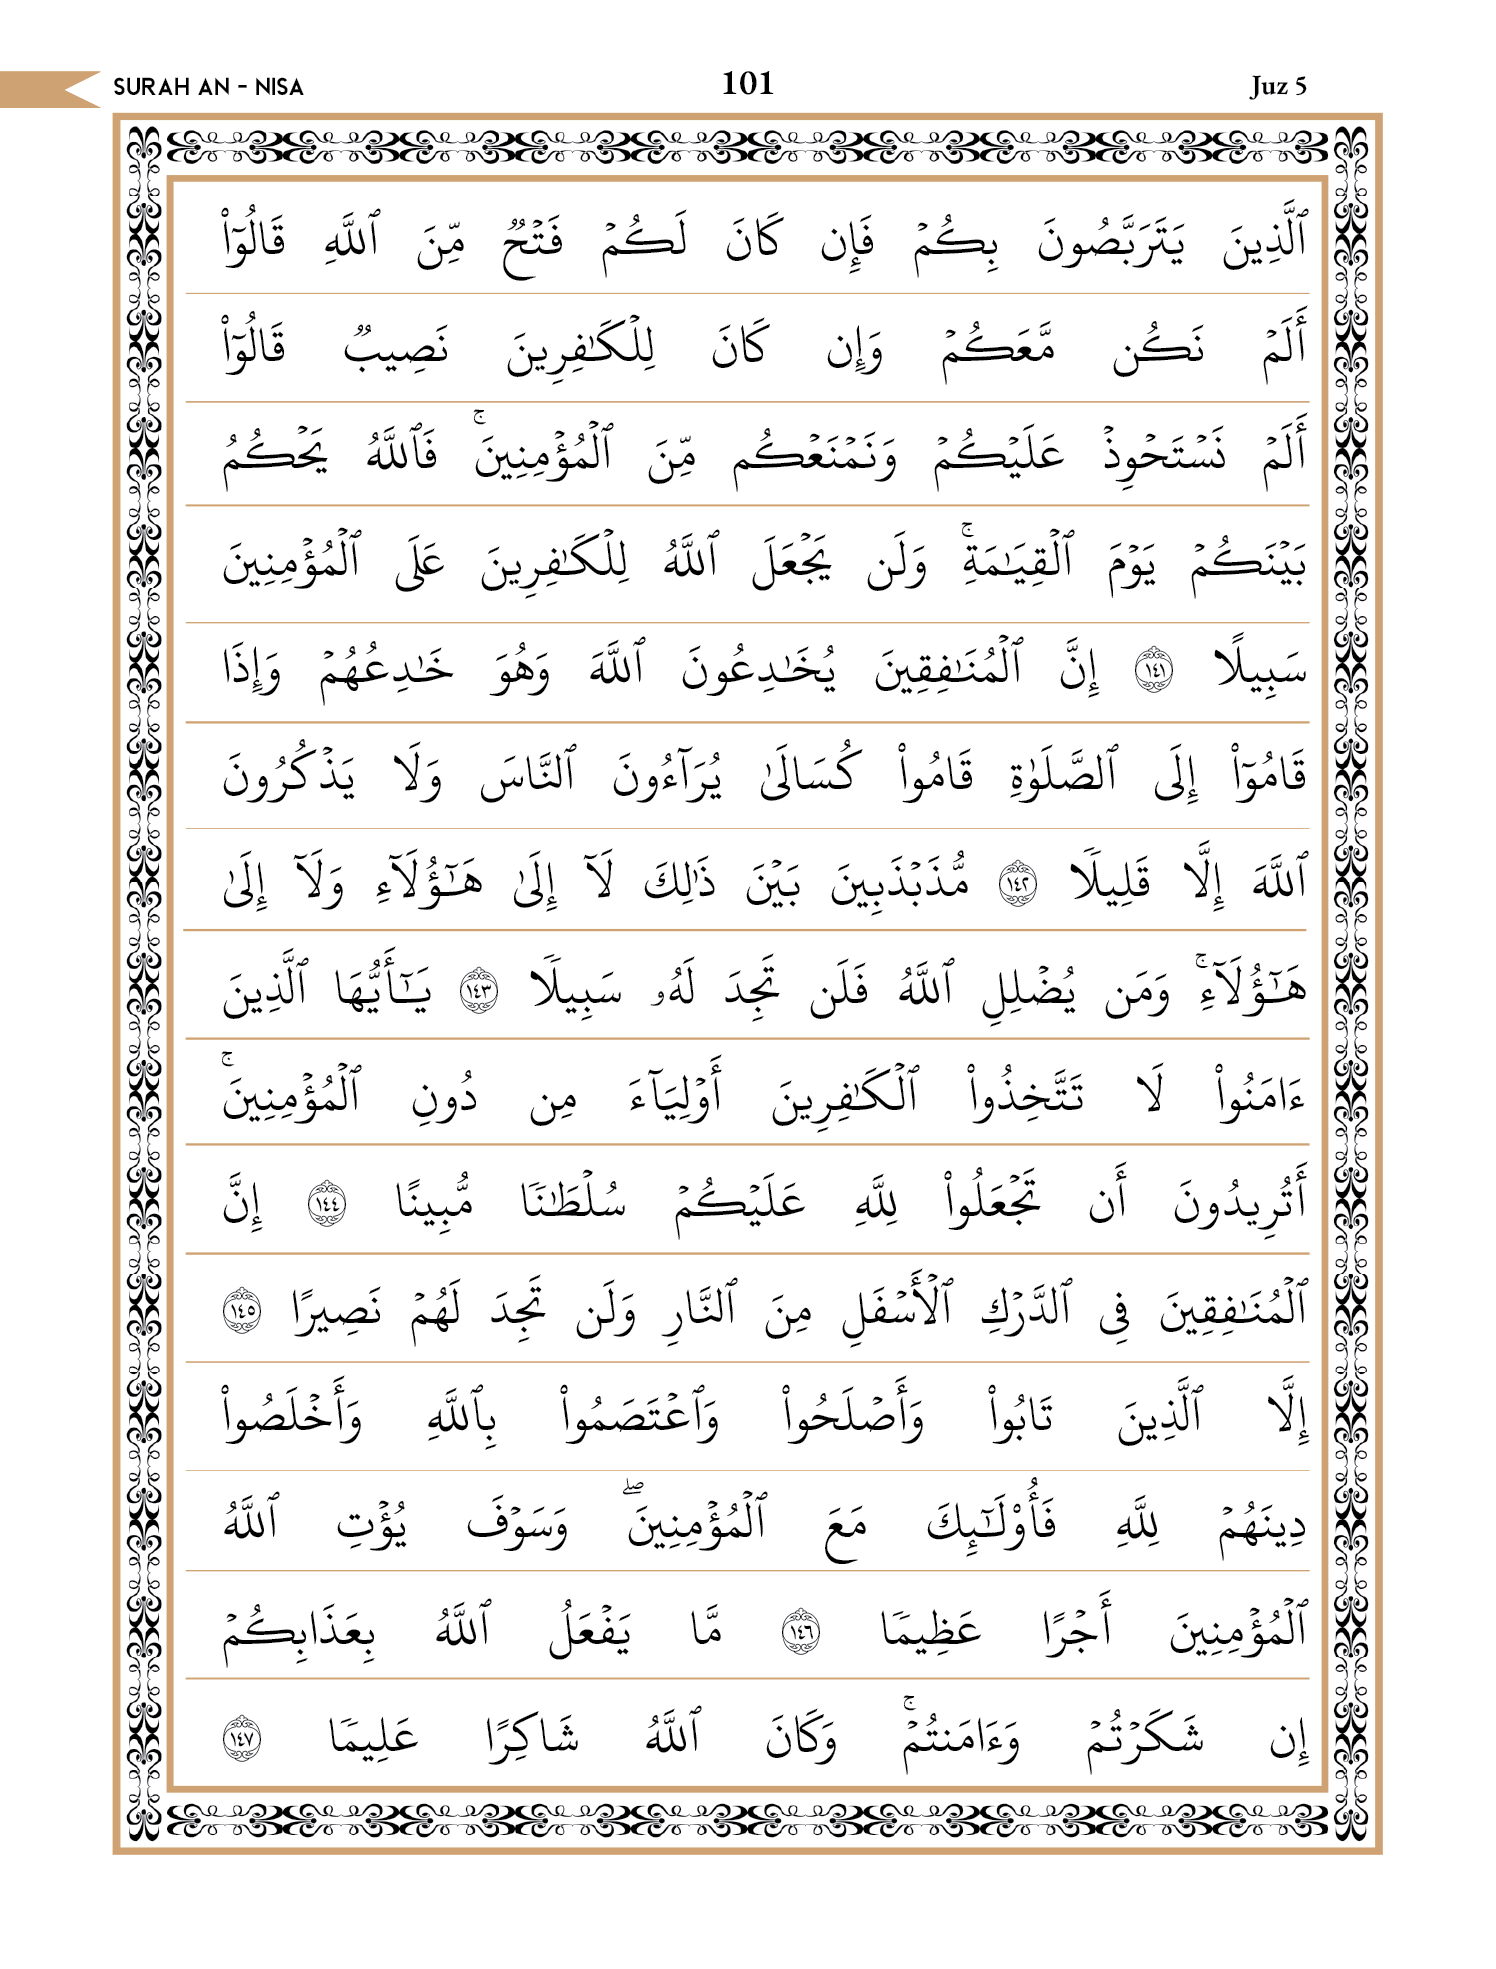 SURAH AN - NISA 101 Juz 5
ٱلَّذِينَ يَتَرَبَّصُونَ بِكُمۡ فَإِن كَانَ لَكُمۡ فَتۡحٞ مِّنَ ٱللَّهِ قَالُوٓاْ
أَلَمۡ نَكُن مَّعَكُمۡ وَإِن كَانَ لِلۡكَٰفِرِينَ نَصِيبٞ قَالُوٓاْ
أَلَمۡ نَسۡتَحۡوِذۡ عَلَيۡكُمۡ وَنَمۡنَعۡكُم مِّنَ ٱلۡمُؤۡمِنِينَۚ فَٱللَّهُ يَحۡكُمُ
بَيۡنَكُمۡ يَوۡمَ ٱلۡقِيَٰمَةِۚ وَلَن يَجۡعَلَ ٱللَّهُ لِلۡكَٰفِرِينَ عَلَى ٱلۡمُؤۡمِنِينَ
سَبِيلًا ١٤١ إِنَّ ٱلۡمُنَٰفِقِينَ يُخَٰدِعُونَ ٱللَّهَ وَهُوَ خَٰدِعُهُمۡ وَإِذَا
قَامُوٓاْ إِلَى ٱلصَّلَوٰةِ قَامُواْ كُسَالَىٰ يُرَآءُونَ ٱلنَّاسَ وَلَا يَذۡكُرُونَ
ٱللَّهَ إِلَّا قَلِيلٗا ١٤٢ مُّذَبۡذَبِينَ بَيۡنَ ذَٰلِكَ لَآ إِلَىٰ هَٰٓؤُلَآءِ وَلَآ إِلَىٰ
هَٰٓؤُلَآءِۚ وَمَن يُضۡلِلِ ٱللَّهُ فَلَن تَجِدَ لَهُۥ سَبِيلٗا ١٤٣ يَٰٓأَيُّهَا ٱلَّذِينَ
ءَامَنُواْ لَا تَتَّخِذُواْ ٱلۡكَٰفِرِينَ أَوۡلِيَآءَ مِن دُونِ ٱلۡمُؤۡمِنِينَۚ
أَتُرِيدُونَ أَن تَجۡعَلُواْ لِلَّهِ عَلَيۡكُمۡ سُلۡطَٰنٗا مُّبِينًا ١٤٤ إِنَّ
ٱلۡمُنَٰفِقِينَ فِي ٱلدَّرۡكِ ٱلۡأَسۡفَلِ مِنَ ٱلنَّارِ وَلَن تَجِدَ لَهُمۡ نَصِيرًا ١٤٥
إِلَّا ٱلَّذِينَ تَابُواْ وَأَصۡلَحُواْ وَٱعۡتَصَمُواْ بِٱللَّهِ وَأَخۡلَصُواْ
دِينَهُمۡ لِلَّهِ فَأُوْلَٰٓئِكَ مَعَ ٱلۡمُؤۡمِنِينَۖ وَسَوۡفَ يُؤۡتِ ٱللَّهُ
ٱلۡمُؤۡمِنِينَ أَجۡرًا عَظِيمٗا ١٤٦ مَّا يَفۡعَلُ ٱللَّهُ بِعَذَابِكُمۡ
إِن شَكَرۡتُمۡ وَءَامَنتُمۡۚ وَكَانَ ٱللَّهُ شَاكِرًا عَلِيمٗا ١٤٧